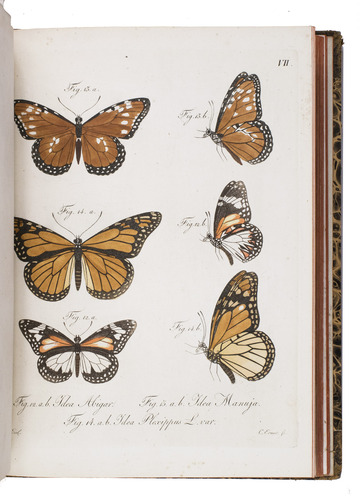 VII
Fig. 13. a.
Fig. 13. b.
Fig. 14. a.
Fig. 12. b.
Fig. 12. a.
Fig. 14. b.
Fig. 12. a. b. Idea Abigar. Fig. 13. a. b. Idea Manuja.
Fig. 14. a. b. Idea Plexippus L. var.